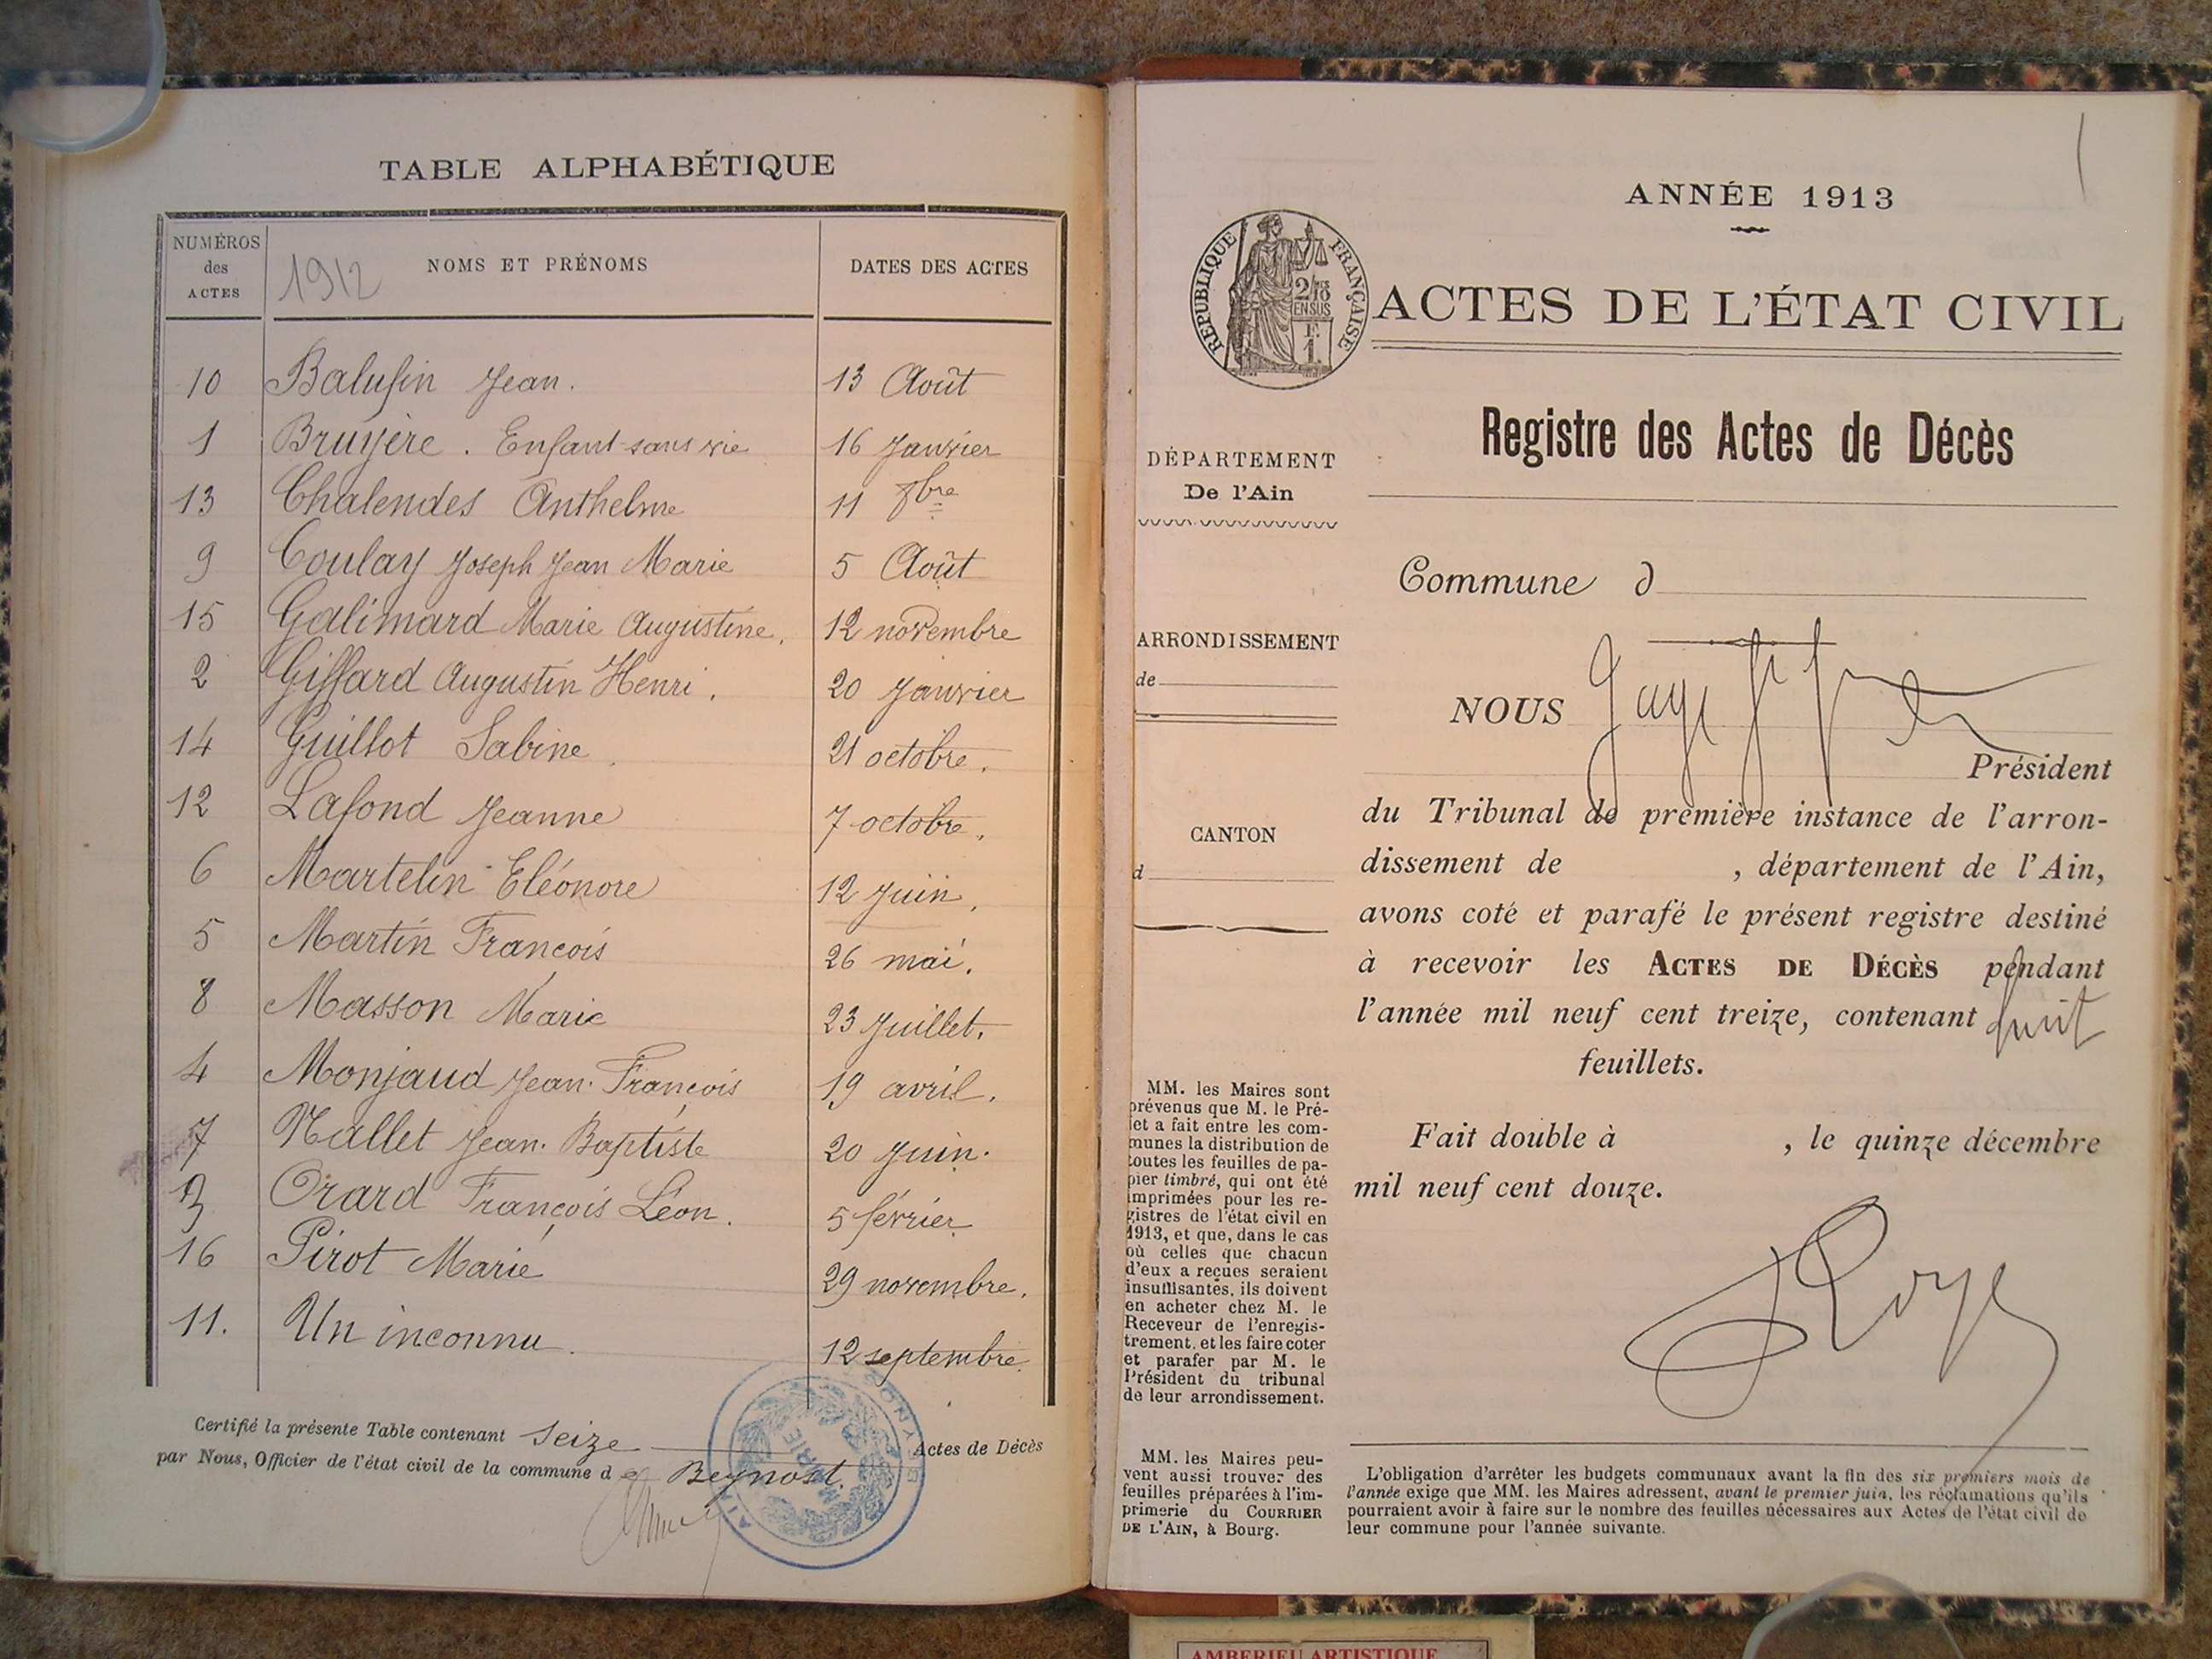 TABLE ALPHABÉTIQUE
NUMÉROS des ACTES
1912
NOMS ET PRÉNOMS
DATES DES ACTES
10 Balufin Jean. 13 Août
1 Bruyère. Enfant sans vie 16 Janvier
13 Chalendes Anthelme 11 8bre
9 Coulay Joseph Jean Marie 5 Août
15 Galimard Marie Augustine. 12 novembre
2 Giffard Augustin Henri. 20 Janvier
14 Guillot Sabine. 21 octobre.
12 Lafond Jeanne 7 octobre.
6 Martelin Eléonore 12 Juin.
5 Martin Francois 26 mai.
8 Masson Marie 23 Juillet.
4 Monjaud Jean. François 19 avril.
7 Nallet Jean. Baptiste 20 Juin.
3 Orard François Léon. 5 février
16 Pirot Marie 29 novembre.
11. Un inconnu. 12 septembre.
Certifié la présente Table contenant Seize Actes de Décès
par Nous, Officier de l'état civil de la commune de Beynost.
MAIRIE
AIN
1
ANNÉE 1913
RÉPUBLIQUE FRANÇAISE
2/10mes
EN SUS
F.
1.
ACTES DE L'ÉTAT CIVIL
Registre des Actes de Décès
DÉPARTEMENT
De l'Ain
Commune d
ARRONDISSEMENT
de
NOUS
Président
du Tribunal de première instance de l'arron-
dissement de , département de l'Ain,
avons coté et parafé le présent registre destiné
à recevoir les ACTES DE DÉCÈS pendant
l'année mil neuf cent treize, contenant huit
feuillets.
Fait double à , le quinze décembre
mil neuf cent douze.
CANTON
d
MM. les Maires sont
prévenus que M. le Pré-
fet a fait entre les com-
munes la distribution de
toutes les feuilles de pa-
pier timbré, qui ont été
imprimées pour les re-
gistres de l'état civil en
1913, et que, dans le cas
où celles que chacun
d'eux a reçues seraient
insuffisantes, ils doivent
en acheter chez M. le
Receveur de l'enregis-
trement, et les faire coter
et parafer par M. le
Président du tribunal
de leur arrondissement.
MM. les Maires peu-
vent aussi trouver des
feuilles préparées à l'im-
primerie du COURRIER
DE L'AIN, à Bourg.
L'obligation d'arrêter les budgets communaux avant la fin des six premiers mois de
l'année exige que MM. les Maires adressent, avant le premier juin, les réclamations qu'ils
pourraient avoir à faire sur le nombre des feuilles nécessaires aux Actes de l'état civil de
leur commune pour l'année suivante.
AMBERIEU ARTISTIQUE